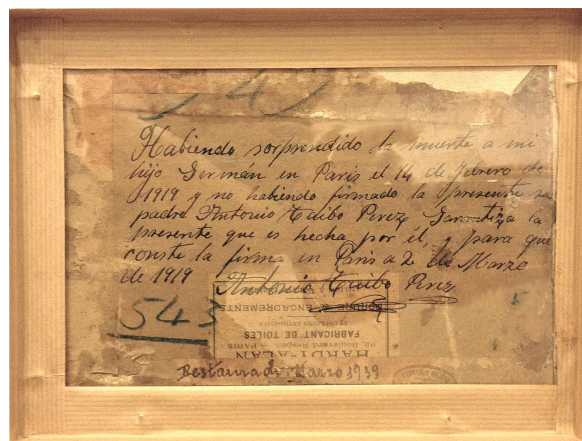 543
Habiendo sorprendido la muerte a mi
hijo Germán en Paris el 14 de Febrero de
1919 y no habiendo firmado la presente su
padre Antonio Taibo Perez, Garantiza la
presente que es hecha por él, y para que
conste la firma en Paris a 2 de Marzo
de 1919 Antonio Taibo Perez
543
5
& ENCADREMENTS
FABRICANT DE TOILES
92, Boulevard Raspail - PARIS
HARDY-ALAN
Restaurado Marzo 1939